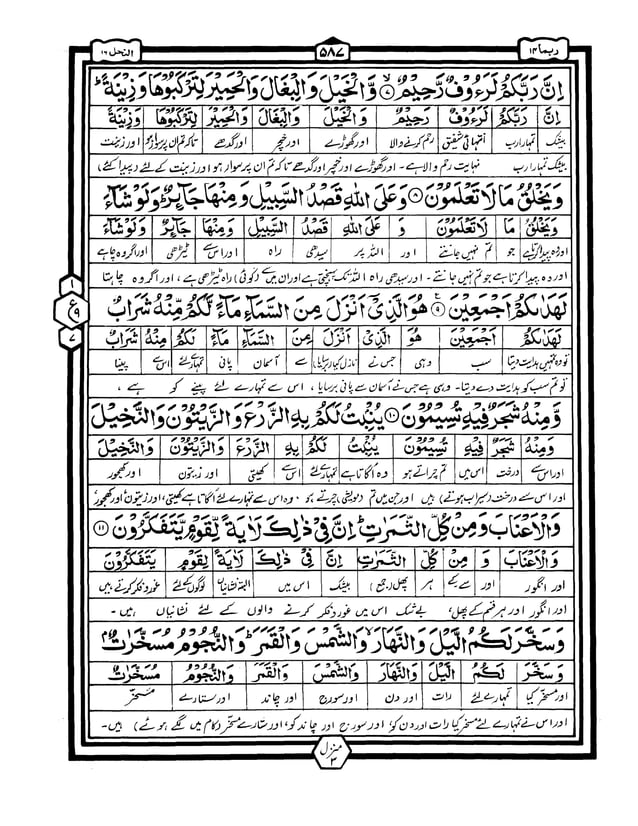 ربما ۱۴ ۵۸۷ النحل ۱۶
اِنَّ رَبَّكُمْ لَرَءُوْفٌ رَّحِيْمٌ ۷ وَّالْخَيْلَ وَالْبِغَالَ وَالْحَمِيْرَ لِتَرْكَبُوْهَا وَزِيْنَةً ؕ
اِنَّ رَبَّكُمْ لَرَءُوْفٌ رَحِيْمٌ وَالْخَيْلَ وَالْبِغَالَ وَالْحَمِيْرَ لِتَرْكَبُوْهَا وَزِيْنَةً
بیشک تمہارا رب انتہائی شفیق رحم کرنے والا اور گھوڑے اور خچر اور گدھے تاکہ تم ان پر سوار ہو اور زینت
بیشک تمہارا رب نہایت رحم والا ہے۔ اور گھوڑے اور خچر اور گدھے تاکہ تم ان پر سوار ہو اور زینت کے لئے (پیدا کئے)
وَيَخْلُقُ مَا لَا تَعْلَمُوْنَ ۸ وَعَلَى اللّٰهِ قَصْدُ السَّبِيْلِ وَمِنْهَا جَآئِرٌ ؕ وَلَوْ شَآءَ
وَيَخْلُقُ مَا لَا تَعْلَمُوْنَ وَ عَلَى اللّٰهِ قَصْدُ السَّبِيْلِ وَمِنْهَا جَآئِرٌ وَلَوْ شَآءَ
اور وہ پیدا کرتا ہے جو تم نہیں جانتے اور اللہ پر سیدھی راہ اور اس سے ٹیڑھی اور اگر وہ چاہے
اور وہ پیدا کرتا ہے جو تم نہیں جانتے۔ اور سیدھی راہ اللہ تک پہنچتی ہے اور ان میں سے (کوئی) راہ ٹیڑھی ہے، اور اگر وہ چاہتا
لَهَدٰىكُمْ اَجْمَعِيْنَ ۹ هُوَ الَّذِيْٓ اَنْزَلَ مِنَ السَّمَآءِ مَآءً لَّكُمْ مِّنْهُ شَرَابٌ
۱ ع ۹ ۷
لَهَدٰىكُمْ اَجْمَعِيْنَ هُوَ الَّذِيْٓ اَنْزَلَ مِنَ السَّمَآءِ مَآءً لَكُمْ مِنْهُ شَرَابٌ
تو وہ تمہیں ہدایت دیتا سب وہی جس نے نازل کیا (برسایا) سے آسمان پانی تمہارے لئے اس سے پینا
تو تم سب کو ہدایت دے دیتا۔ وہی ہے جس نے آسمان سے پانی برسایا، اس سے تمہارے لئے پینے کو ہے،
وَّمِنْهُ شَجَرٌ فِيْهِ تُسِيْمُوْنَ ۱۰ يُنْۢبِتُ لَكُمْ بِهِ الزَّرْعَ وَالزَّيْتُوْنَ وَالنَّخِيْلَ
وَمِنْهُ شَجَرٌ فِيْهِ تُسِيْمُوْنَ يُنْۢبِتُ لَكُمْ بِهِ الزَّرْعَ وَالزَّيْتُوْنَ وَالنَّخِيْلَ
اور اس سے درخت اس میں تم چراتے ہو وہ اگاتا ہے تمہارے لئے اس سے کھیتی اور زیتون اور کھجور
اور اس سے درخت (سیراب ہوتے) ہیں اور جن میں تم (مویشی) چرتے ہو۔ وہ اس سے تمہارے لئے اگاتا ہے کھیتی، اور زیتون اور کھجور
وَالْاَعْنَابَ وَمِنْ كُلِّ الثَّمَرٰتِ ؕ اِنَّ فِيْ ذٰلِكَ لَاٰيَةً لِّقَوْمٍ يَّتَفَكَّرُوْنَ ۱۱
وَالْاَعْنَابَ وَ مِنْ كُلِّ الثَّمَرٰتِ اِنَّ فِيْ ذٰلِكَ لَاٰيَةً لِقَوْمٍ يَتَفَكَّرُوْنَ
اور انگور اور سے کے ہر پھل (جمع) بیشک اس میں البتہ نشانیاں لوگوں کے لئے غور و فکر کرتے ہیں
اور انگور اور ہر قسم کے پھل، بے شک اس میں غور و فکر کرنے والوں کے لئے نشانیاں ہیں۔
وَسَخَّرَ لَكُمُ الَّيْلَ وَالنَّهَارَ ۙ وَالشَّمْسَ وَالْقَمَرَ ؕ وَالنُّجُوْمُ مُسَخَّرٰتٌۢ
وَسَخَّرَ لَكُمُ الَّيْلَ وَالنَّهَارَ وَالشَّمْسَ وَالْقَمَرَ وَالنُّجُوْمُ مُسَخَّرٰتٌۢ
اور مسخر کیا تمہارے لئے رات اور دن اور سورج اور چاند اور ستارے مسخر
اور اس نے تمہارے لئے مسخر کیا رات اور دن کو، اور سورج اور چاند کو، اور ستارے مسخر (کام میں لگے ہوئے) ہیں۔
منزل ۳